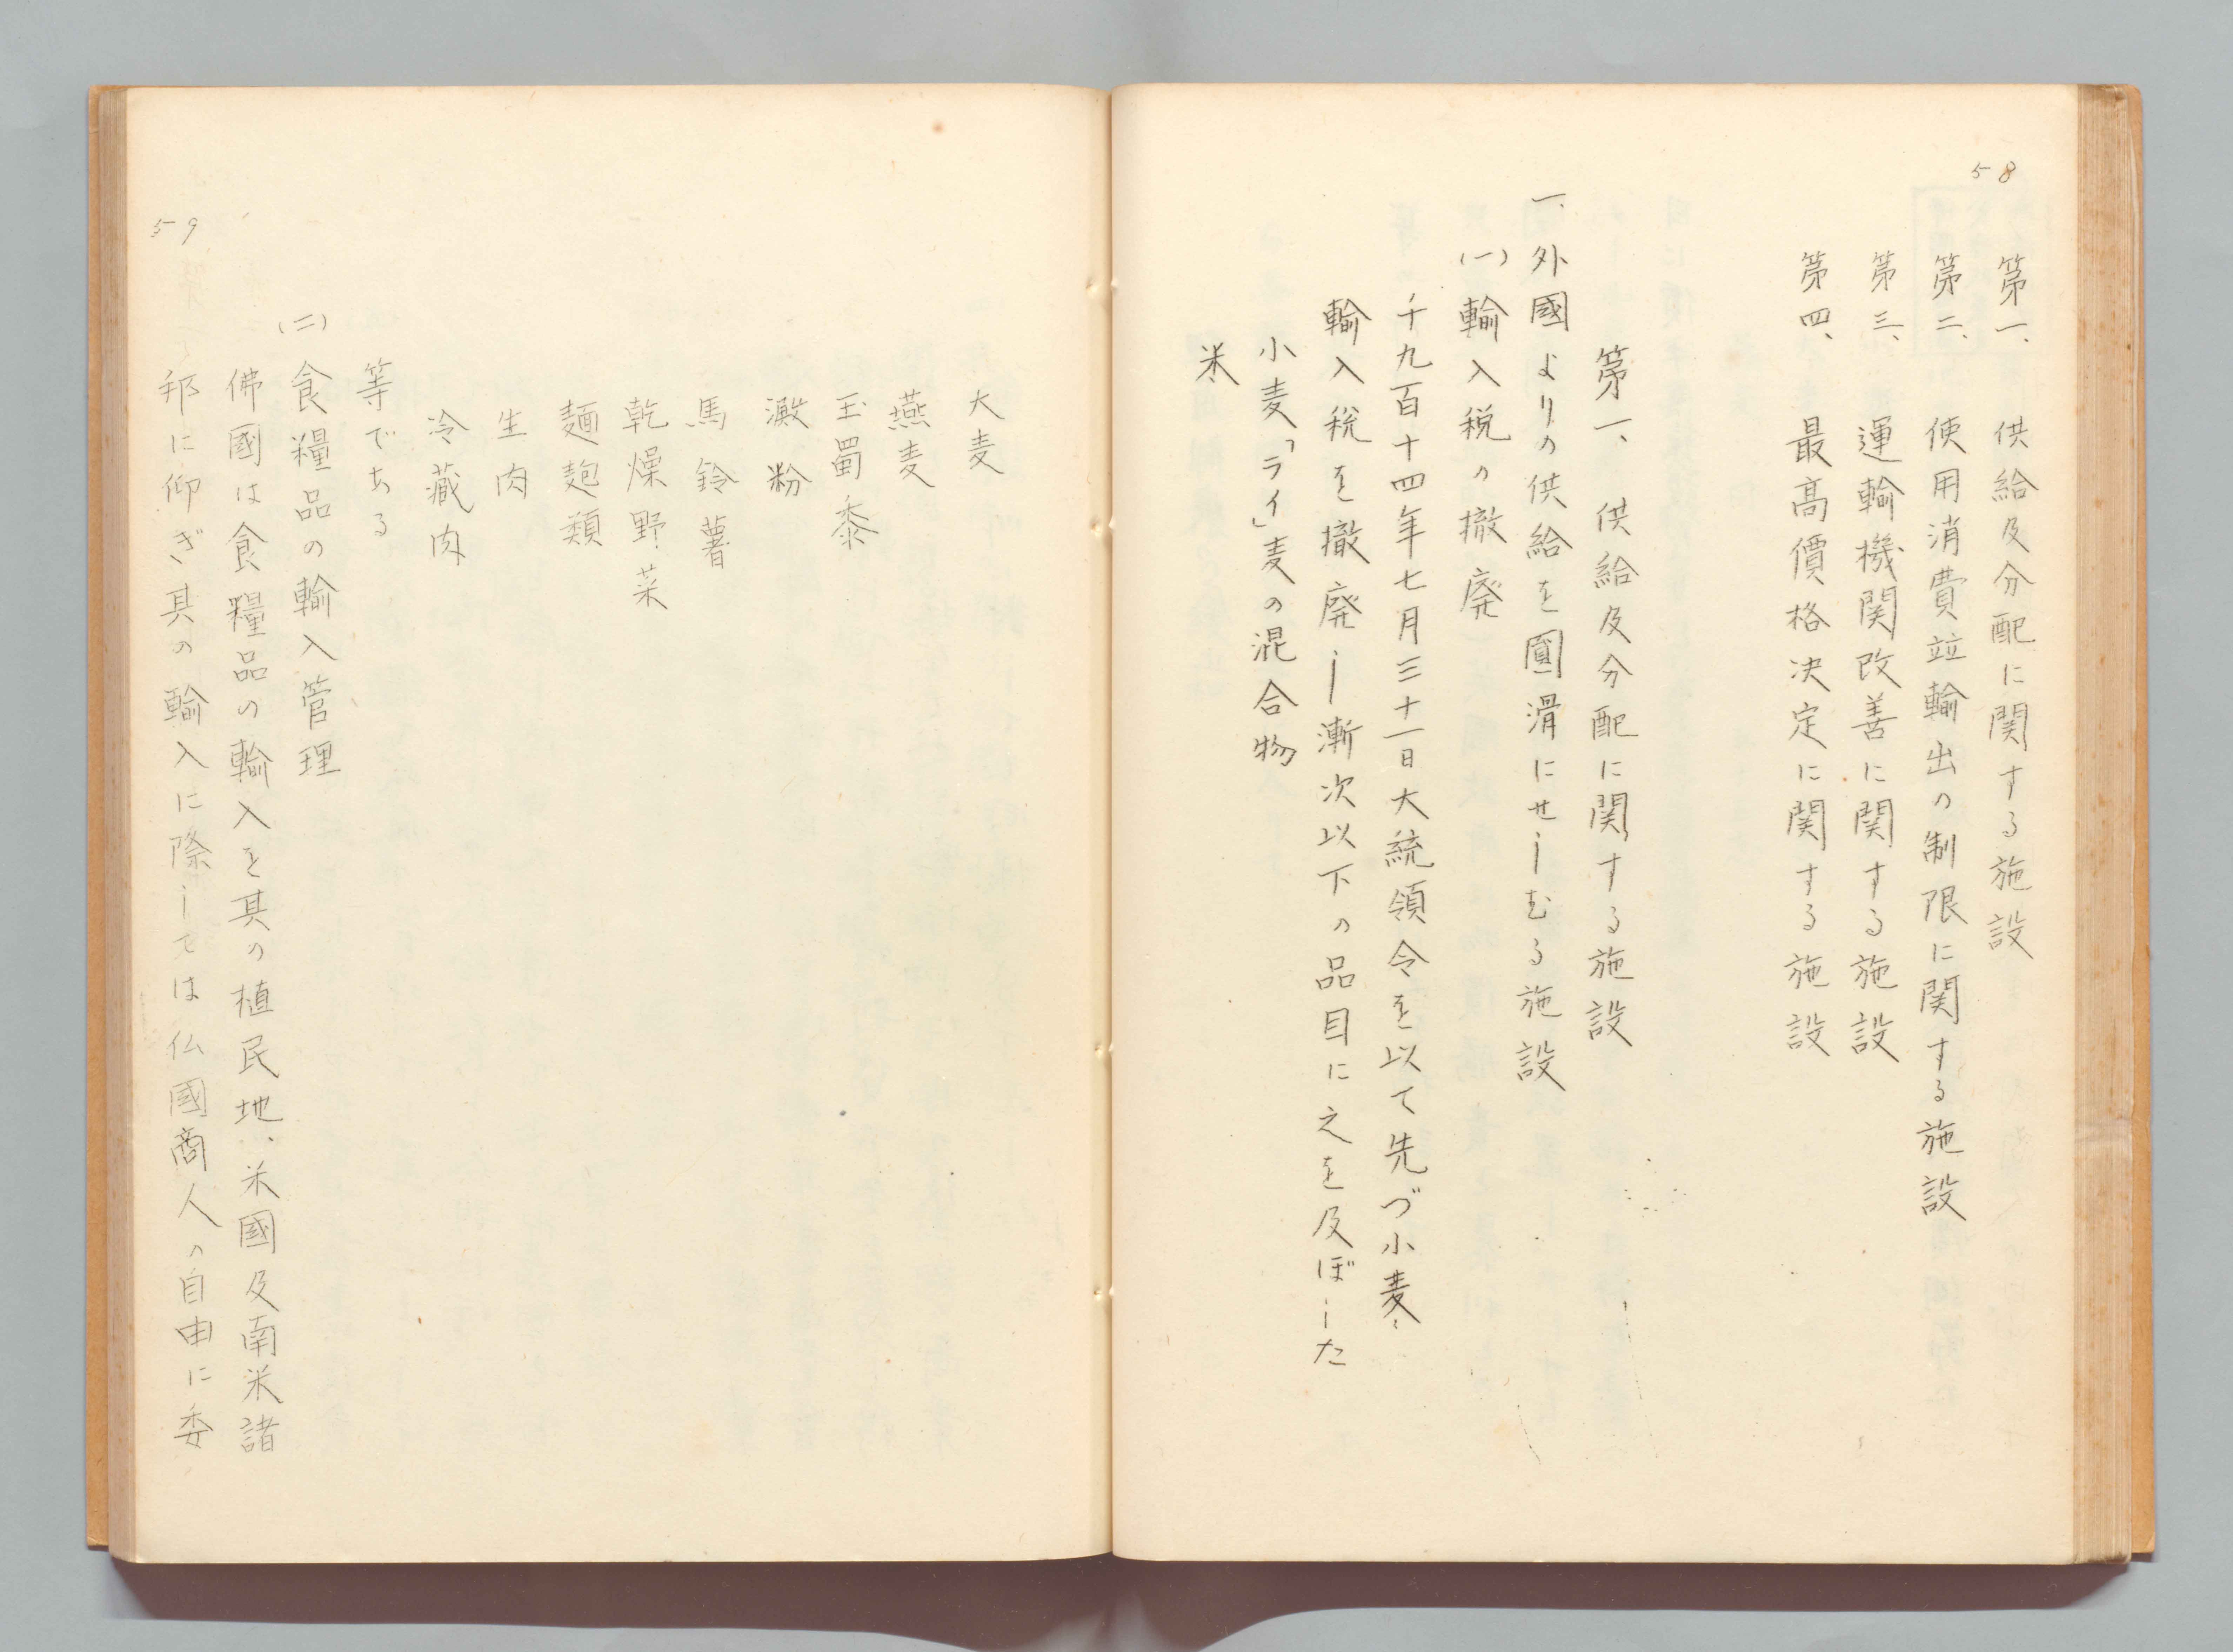 58
第一、　供給及分配に関する施設
第二、　使用消費並輸出の制限に関する施設
第三、　運輸機関改善に関する施設
第四、　最高價格决定に関する施設
第一、供給及分配に関する施設
一、外國よりの供給を圓滑にせしむる施設
(一)輸入税の撤廃
千九百十四年七月三十一日大統領令を以て先づ小麦、
輸入税を撤廃し漸次以下の品目に之を及ぼした
小麦「ライ」麦の混合物
米
大麦
燕麦
玉蜀黍
澱粉
馬鈴薯
乾燥野菜
麺麭類
生肉
冷藏肉
等である
(二)食糧品の輸入管理
佛國は食糧品の輸入を其の植民地、米國及南米諸
邦に仰ぎ其の輸入に際しては仏國商人の自由に委
59